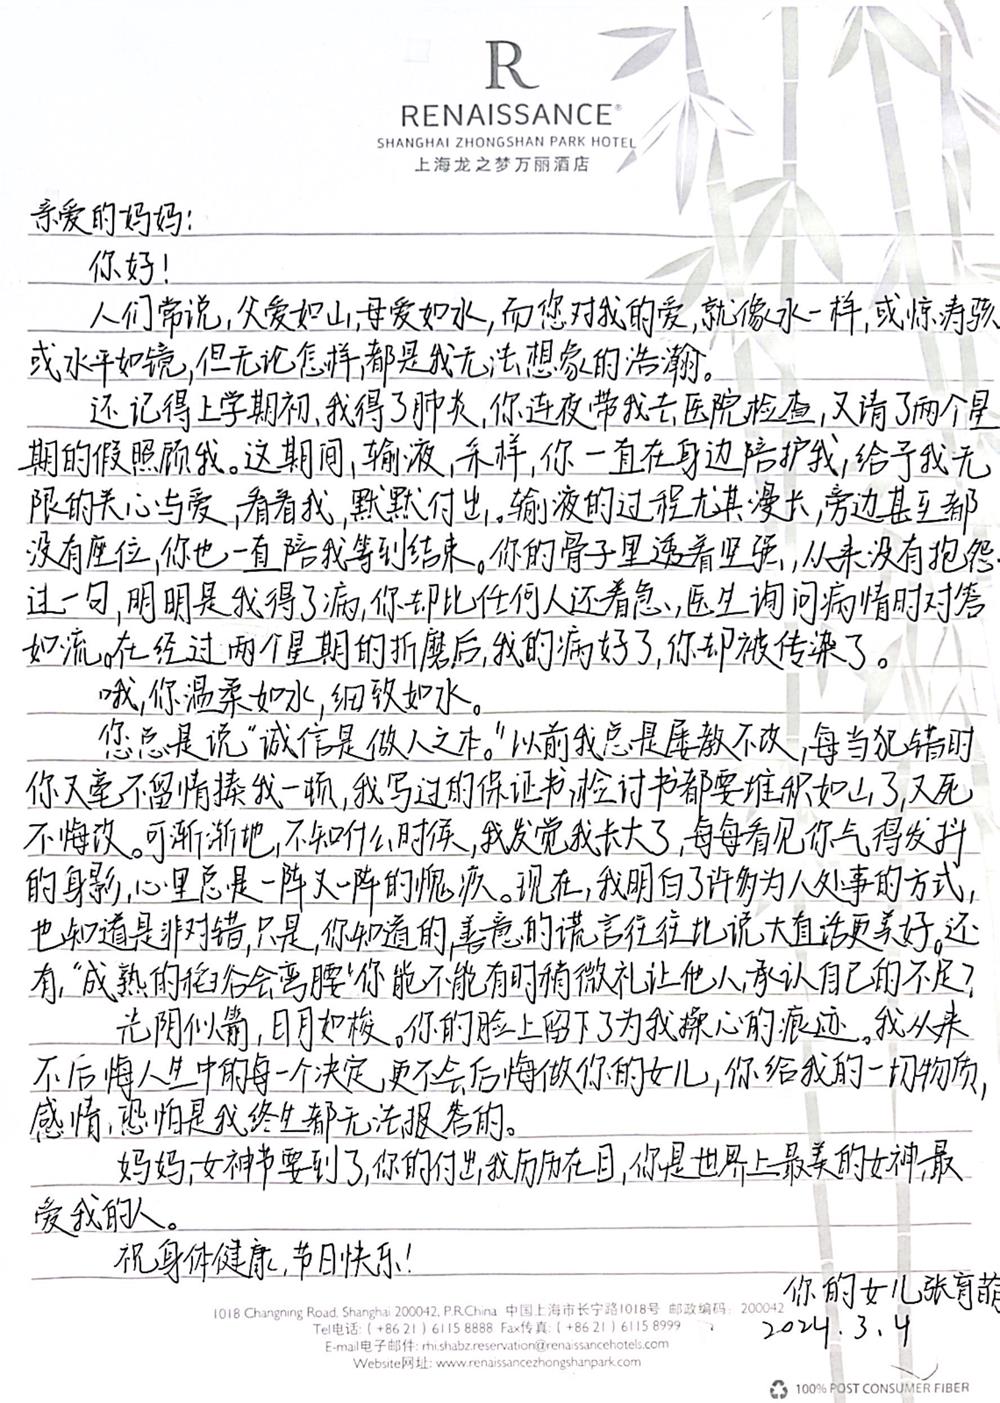 R
RENAISSANCE®
SHANGHAI ZHONGSHAN PARK HOTEL
上海龙之梦万丽酒店
亲爱的妈妈：
你好！
人们常说，父爱如山，母爱如水，而您对我的爱，就像水一样，或惊涛骇
或水平如镜，但无论怎样，都是我无法想象的浩瀚。
还记得上学期初，我得了肺炎，你连夜带我去医院检查，又请了两个星
期的假照顾我。这期间，输液，采样，你一直在身边陪护我，给予我无
限的关心与爱，看着我，默默付出。输液的过程尤其漫长，旁边甚至都
没有座位，你也一直陪我等到结束。你的骨子里透着坚强，从来没有抱怨
过一句，明明是我得了病，你却比任何人还着急，医生询问病情时对答
如流。在经过两个星期的折磨后，我的病好了，你却被传染了。
哦，你温柔如水，细致如水。
您总是说“诚信是做人之本。”以前我总是屡教不改，每当犯错时
你又毫不留情揍我一顿，我写过的保证书，检讨书都要堆积如山了，又死
不悔改。可渐渐地，不知什么时候，我发觉我长大了，每每看见你气得发抖
的身影，心里总是一阵又一阵的愧疚。现在，我明白了许多为人处事的方式，
也知道是非对错，只是，你知道的，善意的谎言往往比说大直话更美好。还
有，“成熟的稻谷会弯腰”你能不能有时稍微礼让他人，承认自己的不足？
光阴似箭，日月如梭。你的脸上留下了为我操心的痕迹。我从来
不后悔人生中的每一个决定，更不会后悔做你的女儿，你给我的一切物质，
感情，恐怕是我终生都无法报答的。
妈妈，女神节要到了，你的付出，我历历在目，你是世界上最美的女神，最
爱我的人。
祝身体健康，节日快乐！
你的女儿张育萌
2024.3.4
1018 Changning Road, Shanghai 200042, P.R.China 中国上海市长宁路1018号 邮政编码：200042
Tel电话：(+86 21) 6115 8888 Fax传真：(+86 21) 6115 8999
E-mail电子邮件: rhi.shabz.reservation@renaissancehotels.com
Website网址: www.renaissancezhongshanpark.com
100% POST CONSUMER FIBER